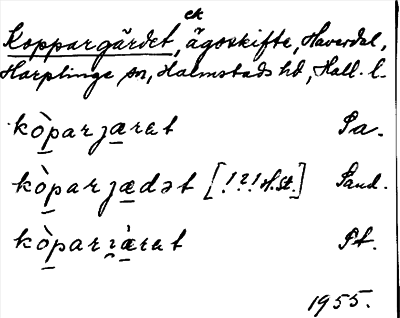 ek
Koppargärdet, ägoskifte, Haverdal,
Harplinge sn, Halmstads hd, Hall. l.
kòparjærət Pa.
kòparjædət [!?! H.St.] Sand.
kòparjæ̀rət Pt.
1955.